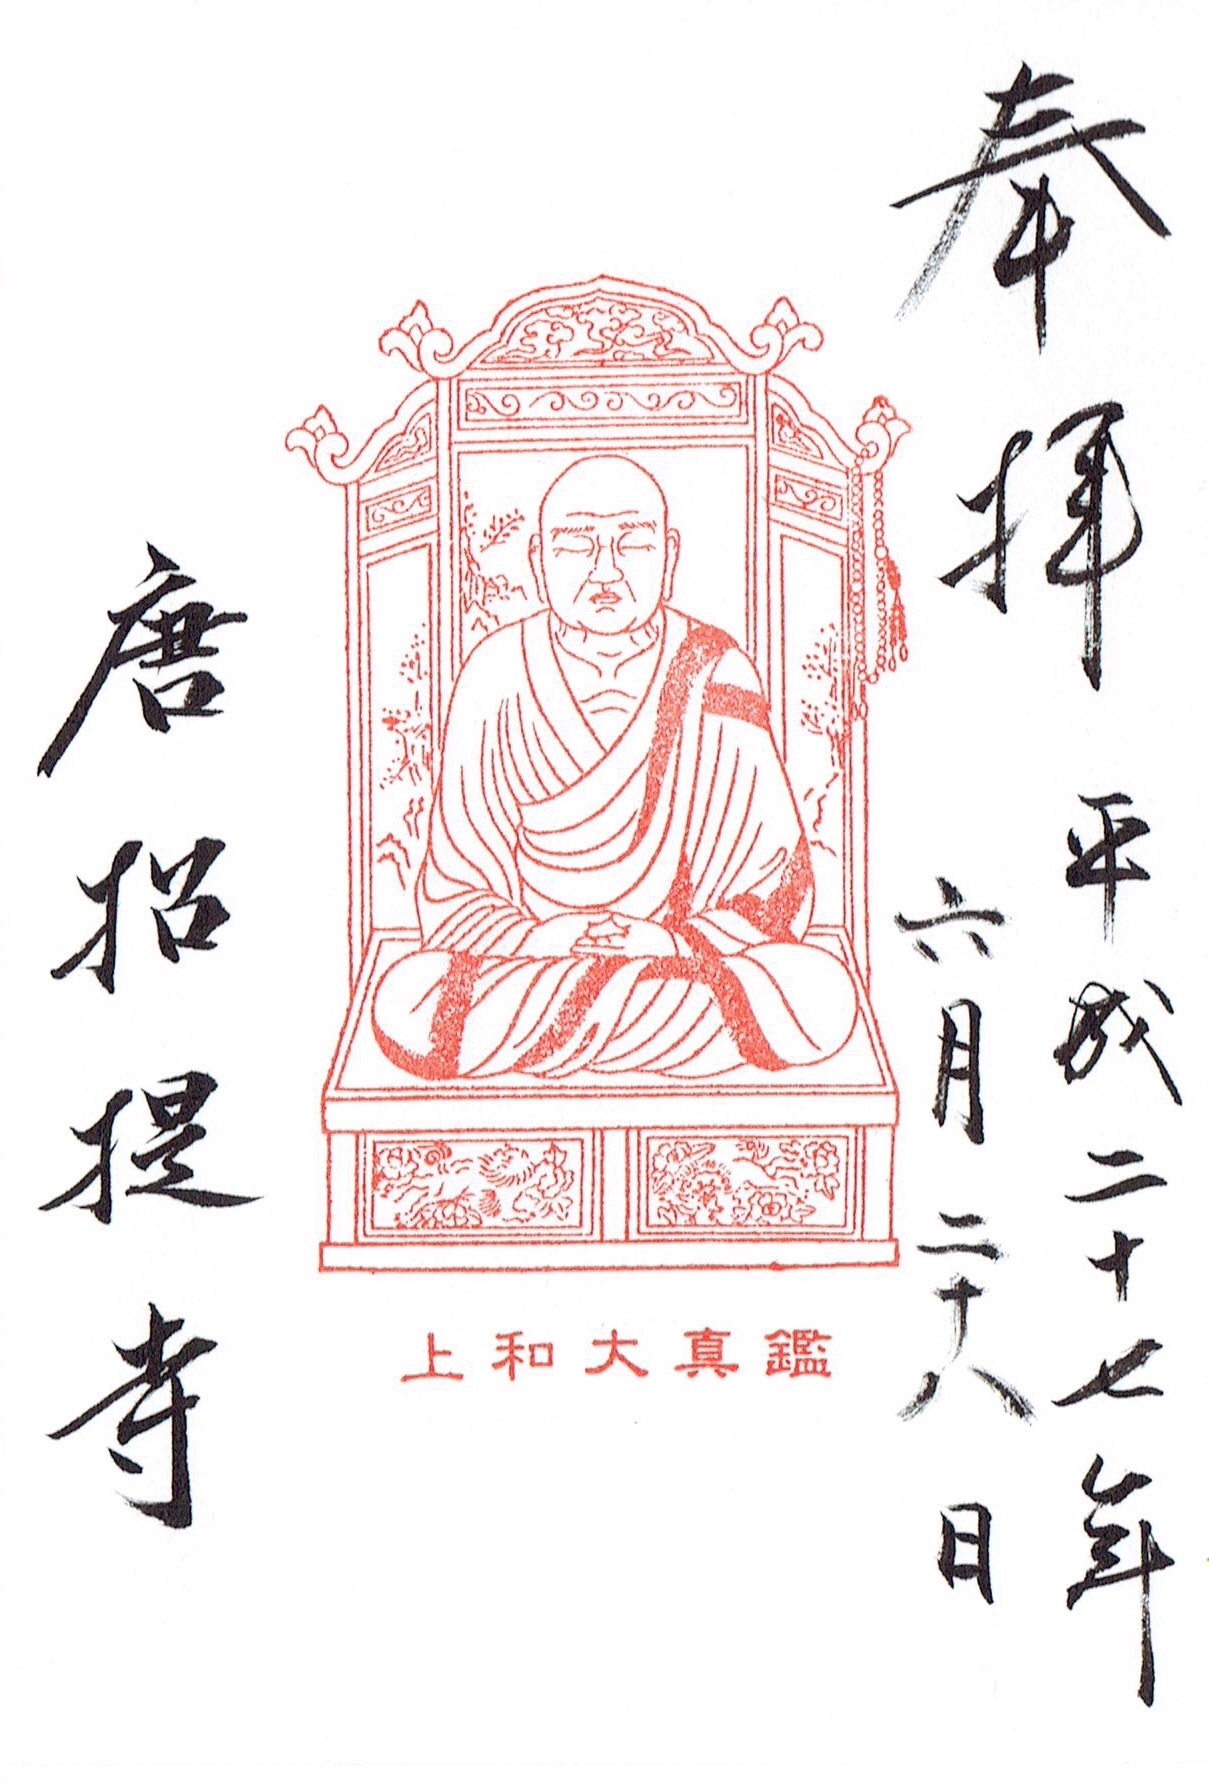 奉拝
平成二十七年
六月二十八日
鑑真大和上
唐招提寺